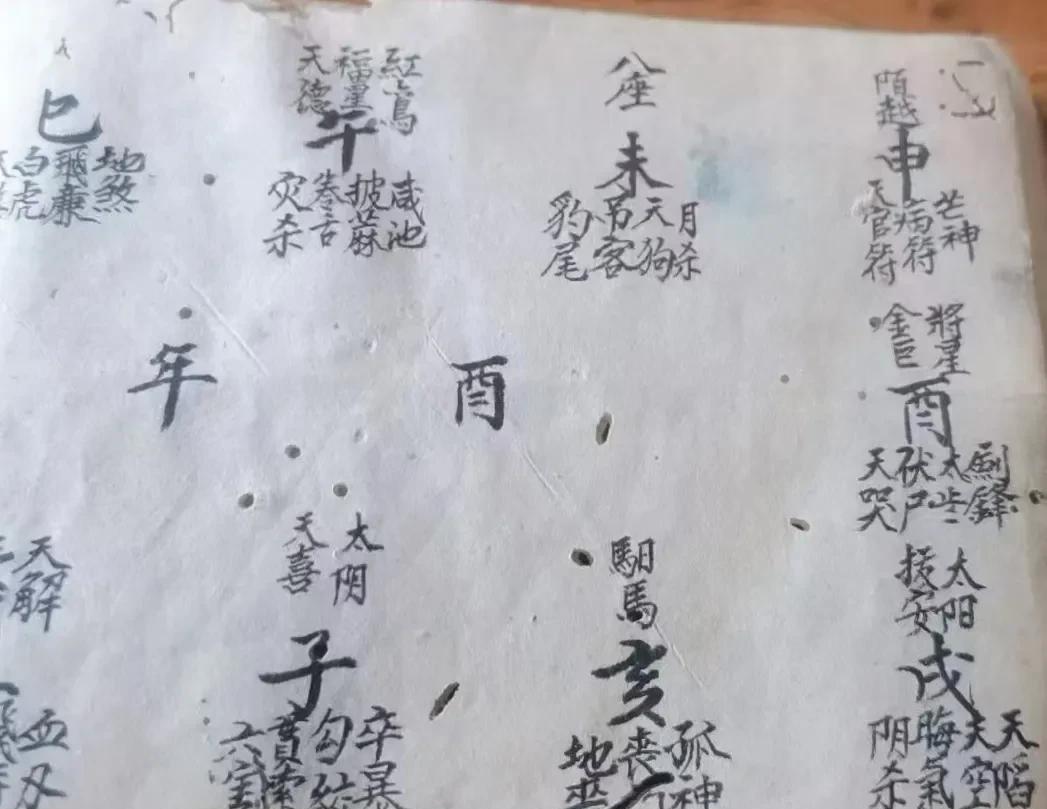 巳
白虎 飛廉 地煞
天德 福星 紅鸞
午
灾杀 卷舌 披蔴 咸池
八座
未
豹尾 吊客 天狗 月杀
陌越
申
天官符 病符 芒神
年 酉
金匜 將星
酉
天哭 伏尸 太岁 劍鋒
天解
天喜 太阴
子
貫索 勾 卒暴
馹馬
亥
地 喪 孤神
扳安 太阳
戌
阴杀 晦氣 天空 天陷
血刃